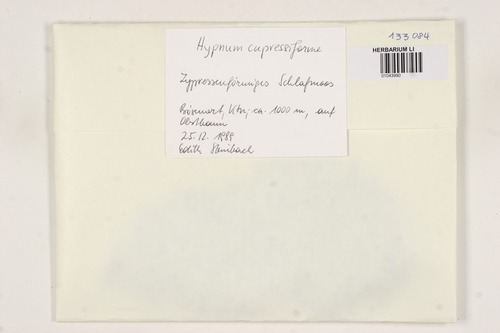 133084
HERBARIUM LI
01043990
Hypnum cupressiforme
Zypressenförmiges Schlafmoos
ca. 1000 m, auf
Obstbaum
25.12.1989
Edith